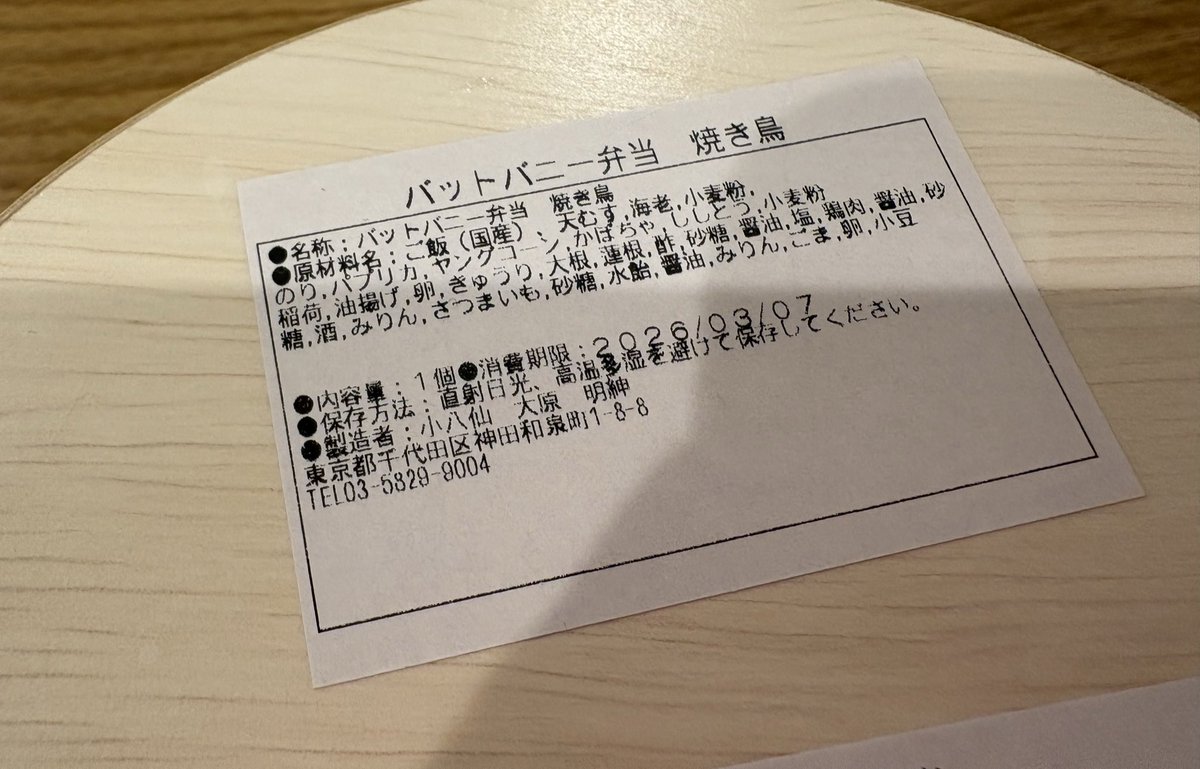 バットバニー弁当　焼き鳥
●名称：バットバニー弁当　焼き鳥
●原材料名：ご飯（国産）、天むす,海老,小麦粉,
のり,パプリカ,ヤングコーン,かぼちゃ,ししとう,小麦粉
稲荷,油揚げ,卵,きゅうり,大根,蓮根,酢,砂糖,醤油,塩,鶏肉,醤油,砂
糖,酒,みりん,さつまいも,砂糖,水飴,醤油,みりん,ごま,卵,小豆
●内容量：１個●消費期限：２０２６/０３/０７
●保存方法：直射日光、高温多湿を避けて保存してください。
●製造者：小八仙　大原　明紳
東京都千代田区神田和泉町1-8-8
TEL03-5829-9004